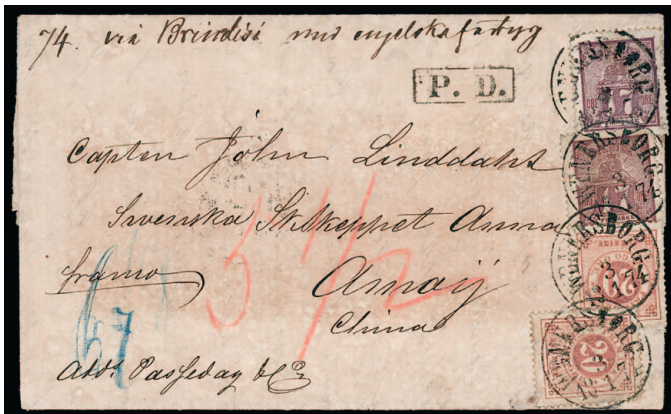 74. via Brindisi med engelska fartyg
P. D.
Capten John Linddahl
Svenska Skskeppet Anna
franco
Amoij
China
Adr. Passedag & Co
3 1/2
67
17
17
20
20
WENERSBORG
WENERSBORG
WENERSBORG
WENERSBORG